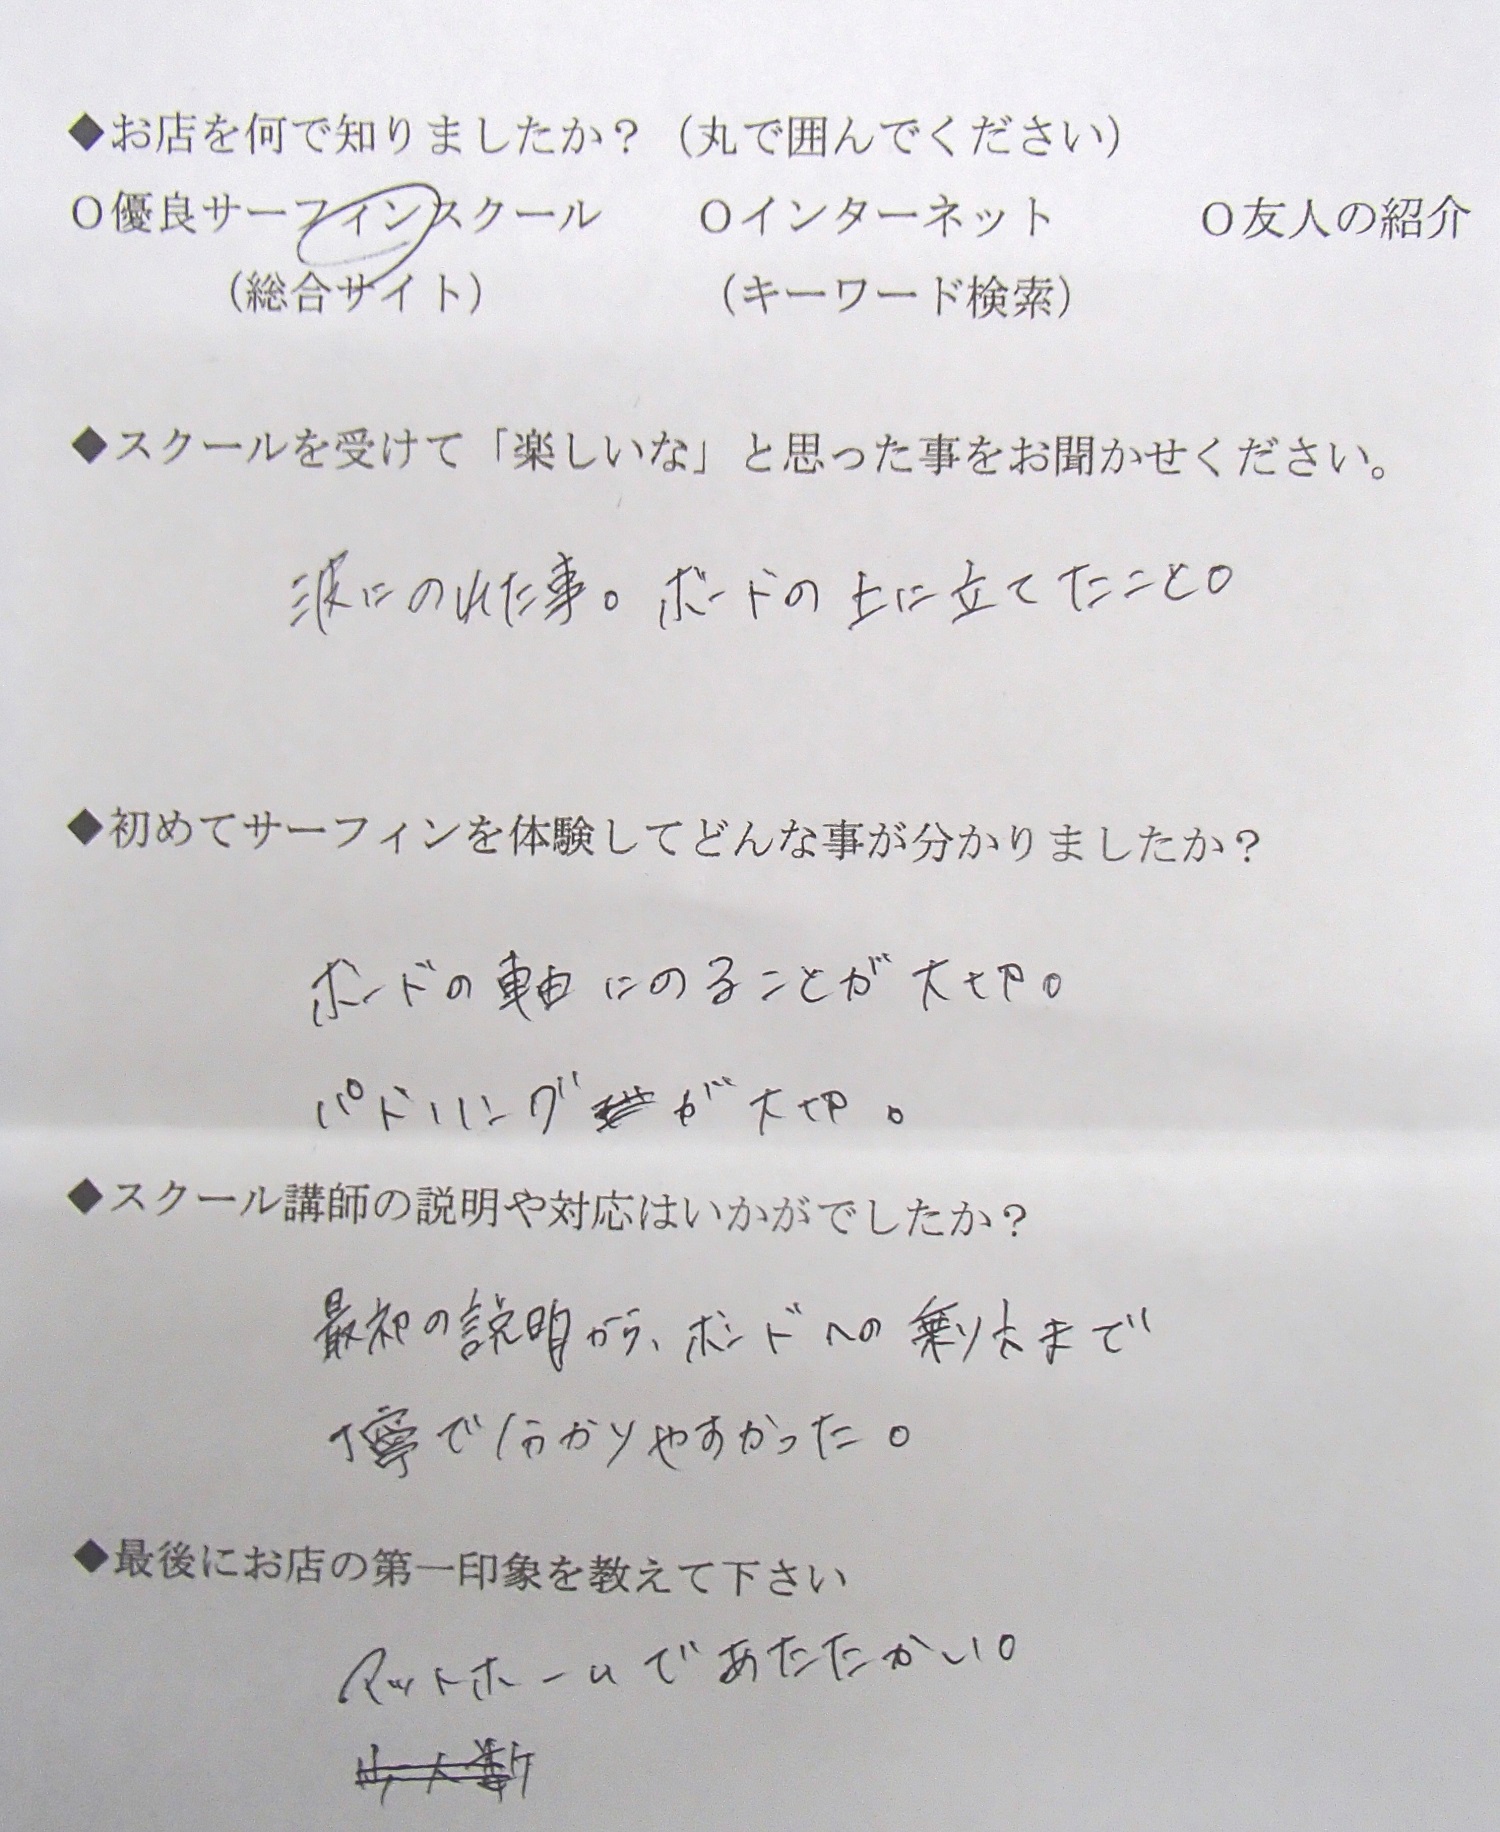 ◆お店を何で知りましたか？（丸で囲んでください）
O優良サーフィンスクール　　Oインターネット　　O友人の紹介
（総合サイト）　　（キーワード検索）
◆スクールを受けて「楽しいな」と思った事をお聞かせください。
波にのれた事。ボードの上に立てたこと。
◆初めてサーフィンを体験してどんな事が分かりましたか？
ボードの軸にのることが大切。
パドリングが大切。
◆スクール講師の説明や対応はいかがでしたか？
最初の説明から、ボードへの乗り方まで
丁寧で分かりやすかった。
◆最後にお店の第一印象を教えて下さい
アットホームであたたかい。
少人数